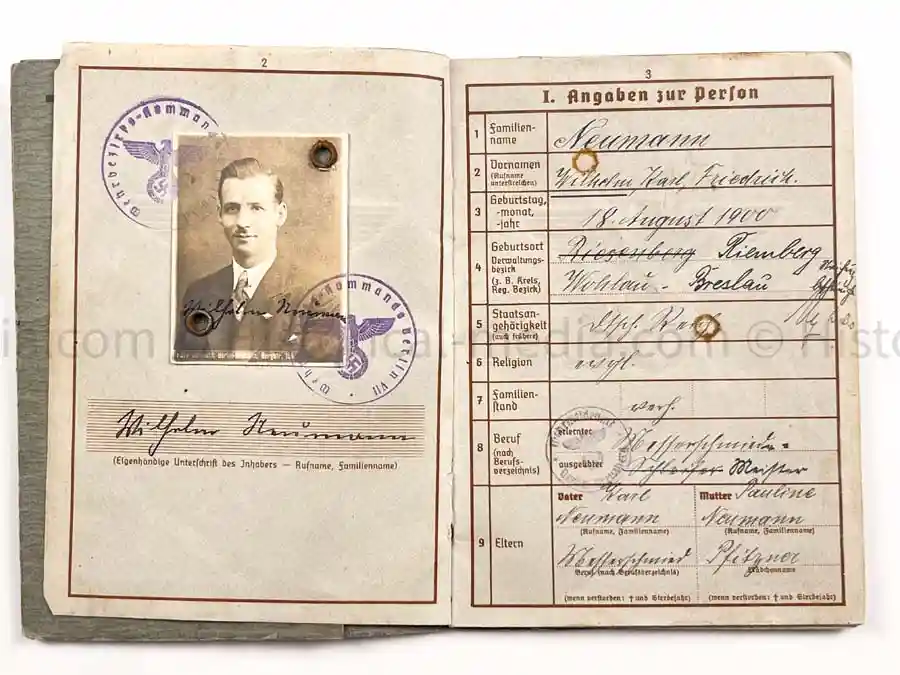 2
Wehrbezirks-Kommando
Wilhelm Neumann
Wehrbezirks-Kommando Berlin VII
Wilhelm Neumann
(Eigenhändige Unterschrift des Inhabers — Rufname, Familienname)
3
I. Angaben zur Person
1 Familienname Neumann
2 Vornamen (Rufname unterstreichen) Wilhelm Karl Friedrich.
3 Geburtstag, -monat, -jahr 18. August 1900
4 Geburtsort Verwaltungsbezirk (z. B. Kreis, Reg. Bezirk) Riesenberg Riemberg
Wohlau - Breslau
5 Staatsangehörigkeit (auch frühere) dtsch. Reich
6 Religion evgl.
7 Familienstand verh.
8 Beruf (nach Berufsverzeichnis) erlernter Messerschmiede-
ausgeübter Schleifer Meister
9 Eltern
Vater Karl
Neumann
(Rufname, Familienname)
Messerschmied
Beruf (nach Berufsverzeichnis)
(wenn verstorben: † und Sterbejahr)
Mutter Pauline
Neumann
(Rufname, Familienname)
Pfitzner
Mädchenname
(wenn verstorben: † und Sterbejahr)
ia.com © Historical-media.com © Histo